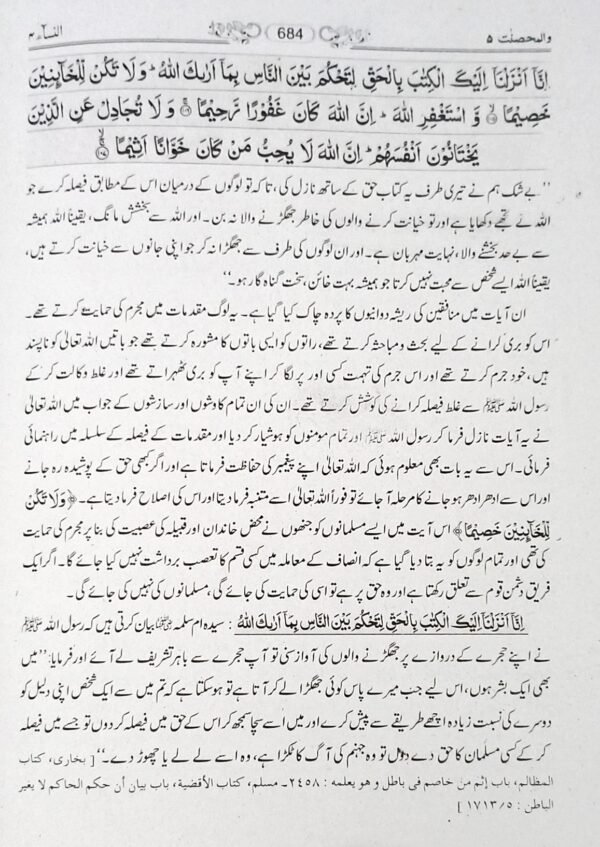 والمحصنٰت ۵ 684 النساء ۴
اِنَّاۤ اَنْزَلْنَاۤ اِلَيْكَ الْكِتٰبَ بِالْحَقِّ لِتَحْكُمَ بَيْنَ النَّاسِ بِمَاۤ اَرٰىكَ اللّٰهُ ؕ وَ لَا تَكُنْ لِّلْخَآىِٕنِيْنَ
خَصِيْمًا ۙ۝۱۰۵ وَّ اسْتَغْفِرِ اللّٰهَ ؕ اِنَّ اللّٰهَ كَانَ غَفُوْرًا رَّحِيْمًا ۚ۝۱۰۶ وَ لَا تُجَادِلْ عَنِ الَّذِيْنَ
يَخْتَانُوْنَ اَنْفُسَهُمْ ؕ اِنَّ اللّٰهَ لَا يُحِبُّ مَنْ كَانَ خَوَّانًا اَثِيْمًا ۚۙ۝۱۰۷
’’بے شک ہم نے تیری طرف یہ کتاب حق کے ساتھ نازل کی، تاکہ تو لوگوں کے درمیان اس کے مطابق فیصلہ کرے جو
اللہ نے تجھے دکھایا ہے اور تو خیانت کرنے والوں کی خاطر جھگڑنے والا نہ بن۔ اور اللہ سے بخشش مانگ، یقیناً اللہ ہمیشہ
سے بے حد بخشنے والا، نہایت مہربان ہے۔ اور ان لوگوں کی طرف سے جھگڑا نہ کر جو اپنی جانوں سے خیانت کرتے ہیں،
یقیناً اللہ ایسے شخص سے محبت نہیں کرتا جو ہمیشہ بہت خائن، سخت گناہ گار ہو۔‘‘
ان آیات میں منافقین کی ریشہ دوانیوں کا پردہ چاک کیا گیا ہے۔ یہ لوگ مقدمات میں مجرم کی حمایت کرتے تھے۔
اس کو بری کرانے کے لیے بحث و مباحثہ کرتے تھے، راتوں کو ایسی باتوں کا مشورہ کرتے تھے جو باتیں اللہ تعالیٰ کو ناپسند
ہیں، خود جرم کرتے تھے اور اس جرم کی تہمت کسی اور پر لگا کر اپنے آپ کو بری ٹھہراتے تھے اور غلط وکالت کر کے
رسول اللہ ﷺ سے غلط فیصلہ کرانے کی کوشش کرتے تھے۔ ان کی ان تمام کاوشوں اور سازشوں کے جواب میں اللہ تعالیٰ
نے یہ آیات نازل فرما کر رسول اللہ ﷺ اور تمام مومنوں کو ہوشیار کر دیا اور مقدمات کے فیصلہ کے سلسلہ میں راہنمائی
فرمائی۔ اس سے یہ بات بھی معلوم ہوئی کہ اللہ تعالیٰ اپنے پیغمبر کی حفاظت فرماتا ہے اور اگر کبھی حق کے پوشیدہ رہ جانے
اور اس سے ادھر ادھر ہو جانے کا مرحلہ آ جائے تو فوراً اللہ تعالیٰ اسے متنبہ فرما دیتا اور اس کی اصلاح فرما دیتا ہے۔ ﴿وَلَا تَكُنْ
لِّلْخَآىِٕنِيْنَ خَصِيْمًا﴾ اس آیت میں ایسے مسلمانوں کو جنھوں نے محض خاندان اور قبیلہ کی عصبیت کی بنا پر مجرم کی حمایت
کی تھی اور تمام لوگوں کو یہ بتا دیا گیا ہے کہ انصاف کے معاملہ میں کسی قسم کا تعصب برداشت نہیں کیا جائے گا۔ اگر ایک
فریق دشمن قوم سے تعلق رکھتا ہے اور وہ حق پر ہے تو اسی کی حمایت کی جائے گی، مسلمانوں کی نہیں کی جائے گی۔
اِنَّاۤ اَنْزَلْنَاۤ اِلَيْكَ الْكِتٰبَ بِالْحَقِّ لِتَحْكُمَ بَيْنَ النَّاسِ بِمَاۤ اَرٰىكَ اللّٰهُ : سیدہ ام سلمہ رضی اللہ عنہا بیان کرتی ہیں کہ رسول اللہ ﷺ
نے اپنے حجرے کے دروازے پر جھگڑنے والوں کی آواز سنی تو آپ حجرے سے باہر تشریف لے آئے اور فرمایا: ’’میں
بھی ایک بشر ہوں، اس لیے جب میرے پاس کوئی جھگڑا لے کر آتا ہے تو ہو سکتا ہے کہ تم میں سے ایک شخص اپنی دلیل کو
دوسرے کی نسبت زیادہ اچھے طریقے سے پیش کرے اور میں اسے سچا سمجھ کر اس کے حق میں فیصلہ کر دوں تو جسے میں فیصلہ
کر کے کسی مسلمان کا حق دے دوں تو وہ جہنم کی آگ کا ٹکڑا ہے، وہ اسے لے لے یا چھوڑ دے۔‘‘ [ بخاری، کتاب
المظالم، باب إثم من خاصم فی باطل و هو يعلمه : ٢٤٥٨۔ مسلم، كتاب الأقضية، باب بيان أن حكم الحاكم لا يغير
الباطن : ١٧١٣/٥ ]